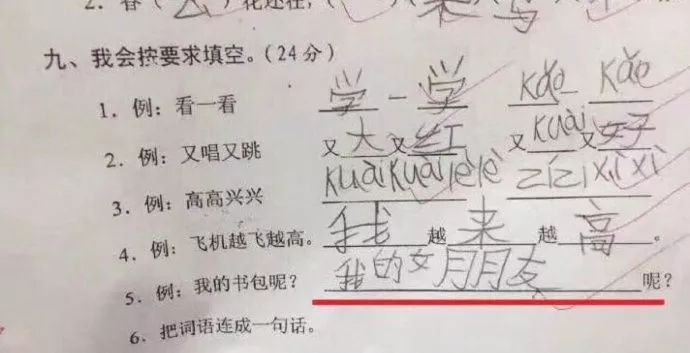 2. 春( 去 )花还在,(
九、我会按要求填空。(24分)
1. 例:看一看 学一学 kǎo kǎo
2. 例:又唱又跳 又大又红 又kuài又好
3. 例:高高兴兴 kuàikuàilèlè zǐzǐxìxì
4. 例:飞机越飞越高。 我越来越高。
5. 例:我的书包呢? 我的女朋友呢?
6. 把词语连成一句话。